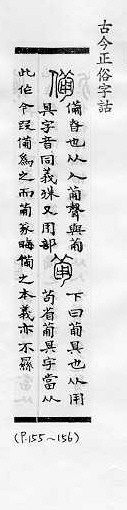 古今正俗字詁
備
備眘也从人𤰈聲與𤰈
具字音同義殊又用部
𤰈
下曰𤰈具也从用
苟省𤰈具字當从
此作今叚備為之而𤰈篆晦備之本義亦不顯
(P.155~156)